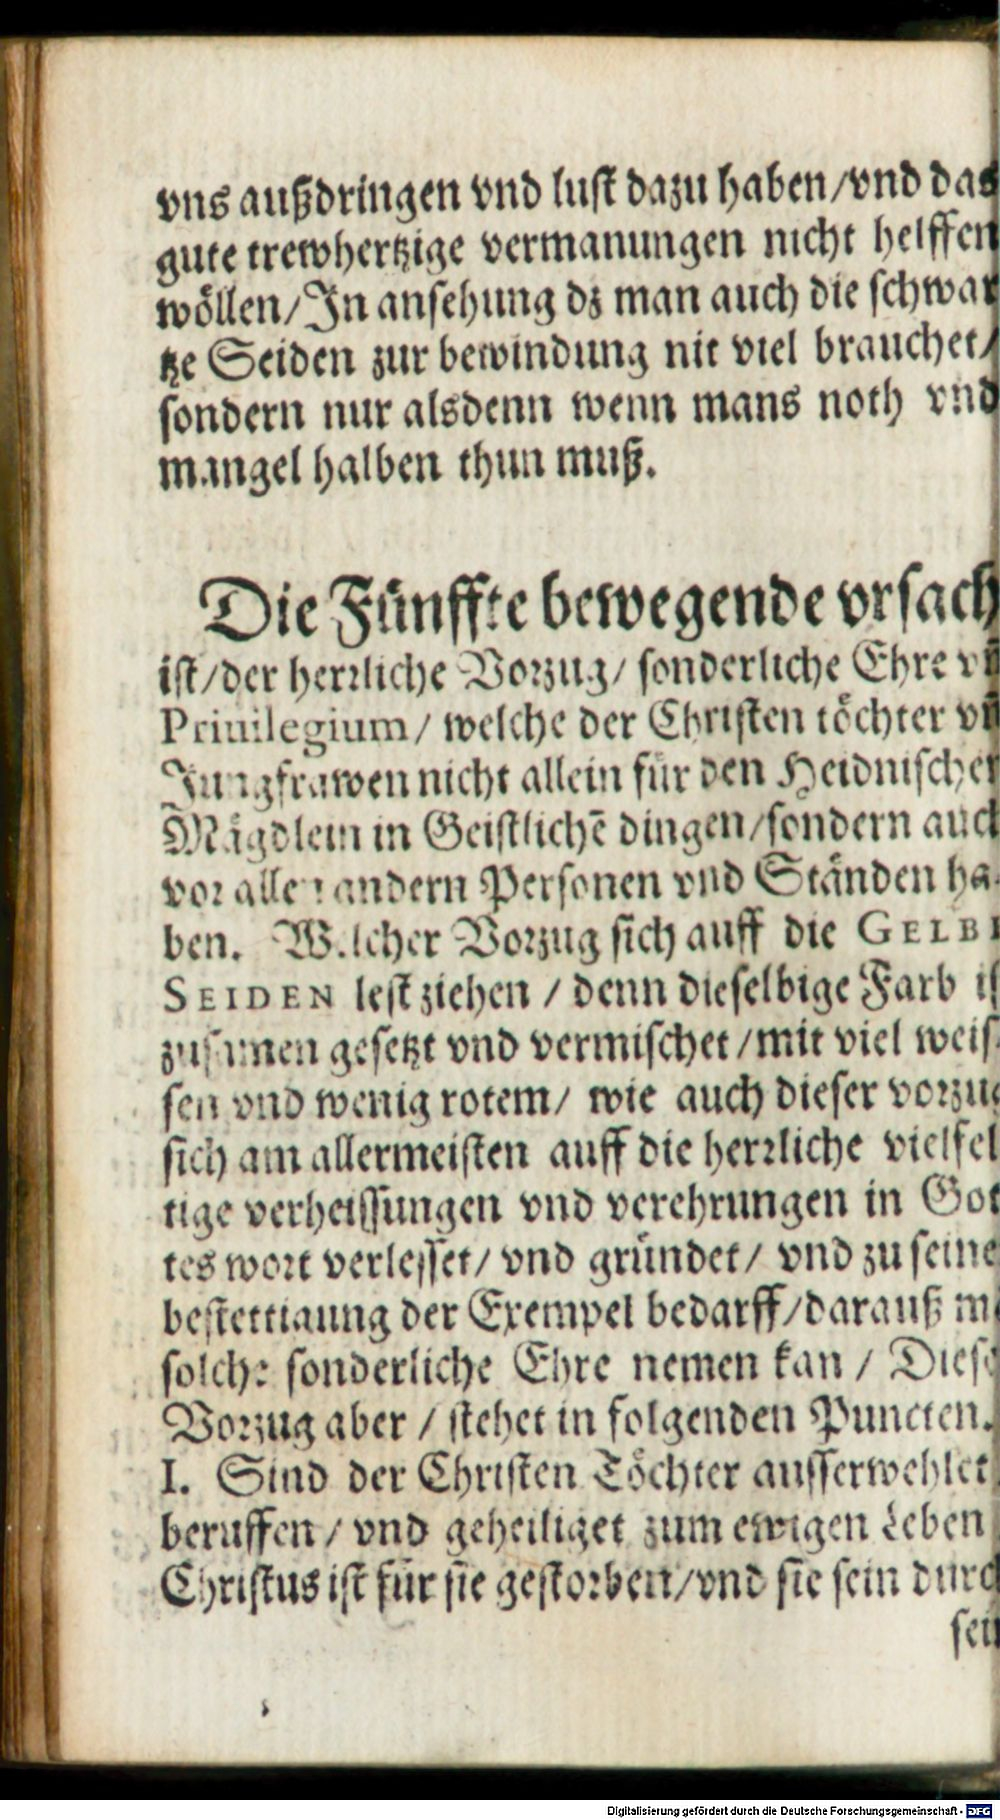 vns außdringen vnd lust dazu haben/vnd das
gute trewhertzige vermanungen nicht helffen
wöllen/In ansehung dz man auch die schwar
tze Seiden zur bewindung nit viel brauchet/
sondern nur alsdenn wenn mans noth vnd
mangel halben thun muß.
Die Fünffte bewegende vrsach
ist/der herrliche Vorzug/ sonderliche Ehre vñ
Priuilegium/ welche der Christen töchter vñ
Jungfrawen nicht allein für den Heidnischen
Mägdlein in Geistlichẽ dingen/sondern auch
vor allen andern Personen vnd Ständen ha-
ben. Welcher Vorzug sich auff die GELBE
SEIDEN lest ziehen / denn dieselbige Farb is
zusamen gesetzt vnd vermischet/mit viel weis-
sen vnd wenig rotem/ wie auch dieser vorzug
sich am allermeisten auff die herrliche vielfel
tige verheissungen vnd verehrungen in Got
tes wort verlesset/ vnd gründet/ vnd zu seine
bestettigung der Exempel bedarff/darauß m
solche sonderliche Ehre nemen kan / Diese
Vorzug aber / stehet in folgenden Puncten.
I. Sind der Christen Töchter ausserwehlet
beruffen/ vnd geheiliget zum ewigen Leben
Christus ist für sie gestorben/vnd sie sein durc
sein
Digitalisierung gefördert durch die Deutsche Forschungsgemeinschaft - DFG